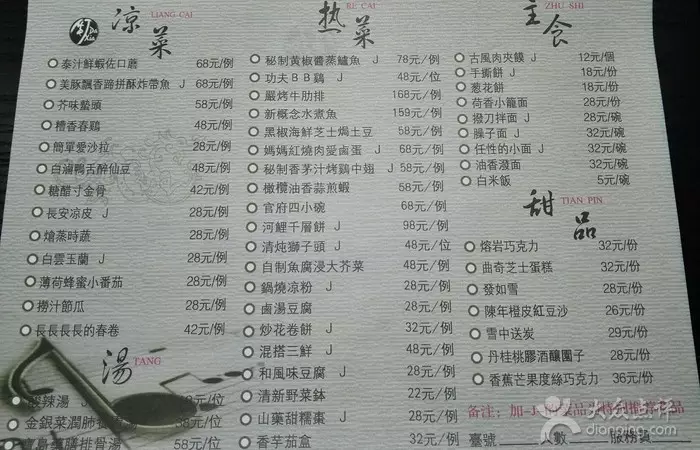 凉菜
LIANG CAI
泰汁鮮蝦佐口蘑 68元/例
美豚飄香蹄拼酥炸帶魚 J 68元/例
芥味螯頭 58元/例
糟香春鷄 48元/例
簡單愛沙拉 28元/例
白滷鴨舌醉仙豆 48元/例
糖醋寸金骨 42元/例
長安凉皮 J 28元/例
熗蒸時蔬 28元/例
白雲玉蘭 J 28元/例
薄荷蜂蜜小番茄 28元/例
撈汁節瓜 28元/例
長長長長的春卷 42元/例
湯
TANG
酸辣湯 J
金銀菜潤肺
膳排骨湯 58元/位
热菜
RE CAI
秘制黄椒醬蒸鱸魚 J 78元/例
功夫BB鷄 J 48元/位
嚴烤牛肋排 168元/例
新概念水煮魚 159元/例
黑椒海鮮芝士焗土豆 58元/例
媽媽紅燒肉愛鹵蛋 J 68元/例
秘制香茅汁烤鷄中翅 J 58元/例
橄欖油香蒜煎蝦 58元/例
官府四小碗 68元/例
河鯉千層餅 J 98元/例
清炖獅子頭 J 48元/位
自制魚腐浸大芥菜 48元/例
鍋燒凉粉 J 28元/例
鹵湯豆腐 28元/例
炒花卷餅 J 32元/例
混搭三鮮 J 48元/例
和風味豆腐 J 28元/例
清新野菜鉢 22元/例
山藥甜糯棗 J 28元/例
香芋茄盒 32元/例
主食
ZHU SHI
古風肉夾饃 J 12元/個
手撕餅 J 18元/份
葱花餅 18元/份
荷香小籠面 28元/份
撥刀拌面 J 28元/碗
臊子面 J 32元/碗
任性的小面 J 32元/碗
油香潑面 32元/碗
白米飯 5元/碗
甜品
TIAN PIN
熔岩巧克力 32元/份
曲奇芝士蛋糕 32元/份
發如雪 28元/份
陳年橙皮紅豆沙 26元/份
雪中送炭 29元/份
丹桂桃膠酒釀圓子 28元/份
香蕉芒果度絲巧克力 36元/份
备注：加
大众点评
dianping.com
臺號 人數 服務員